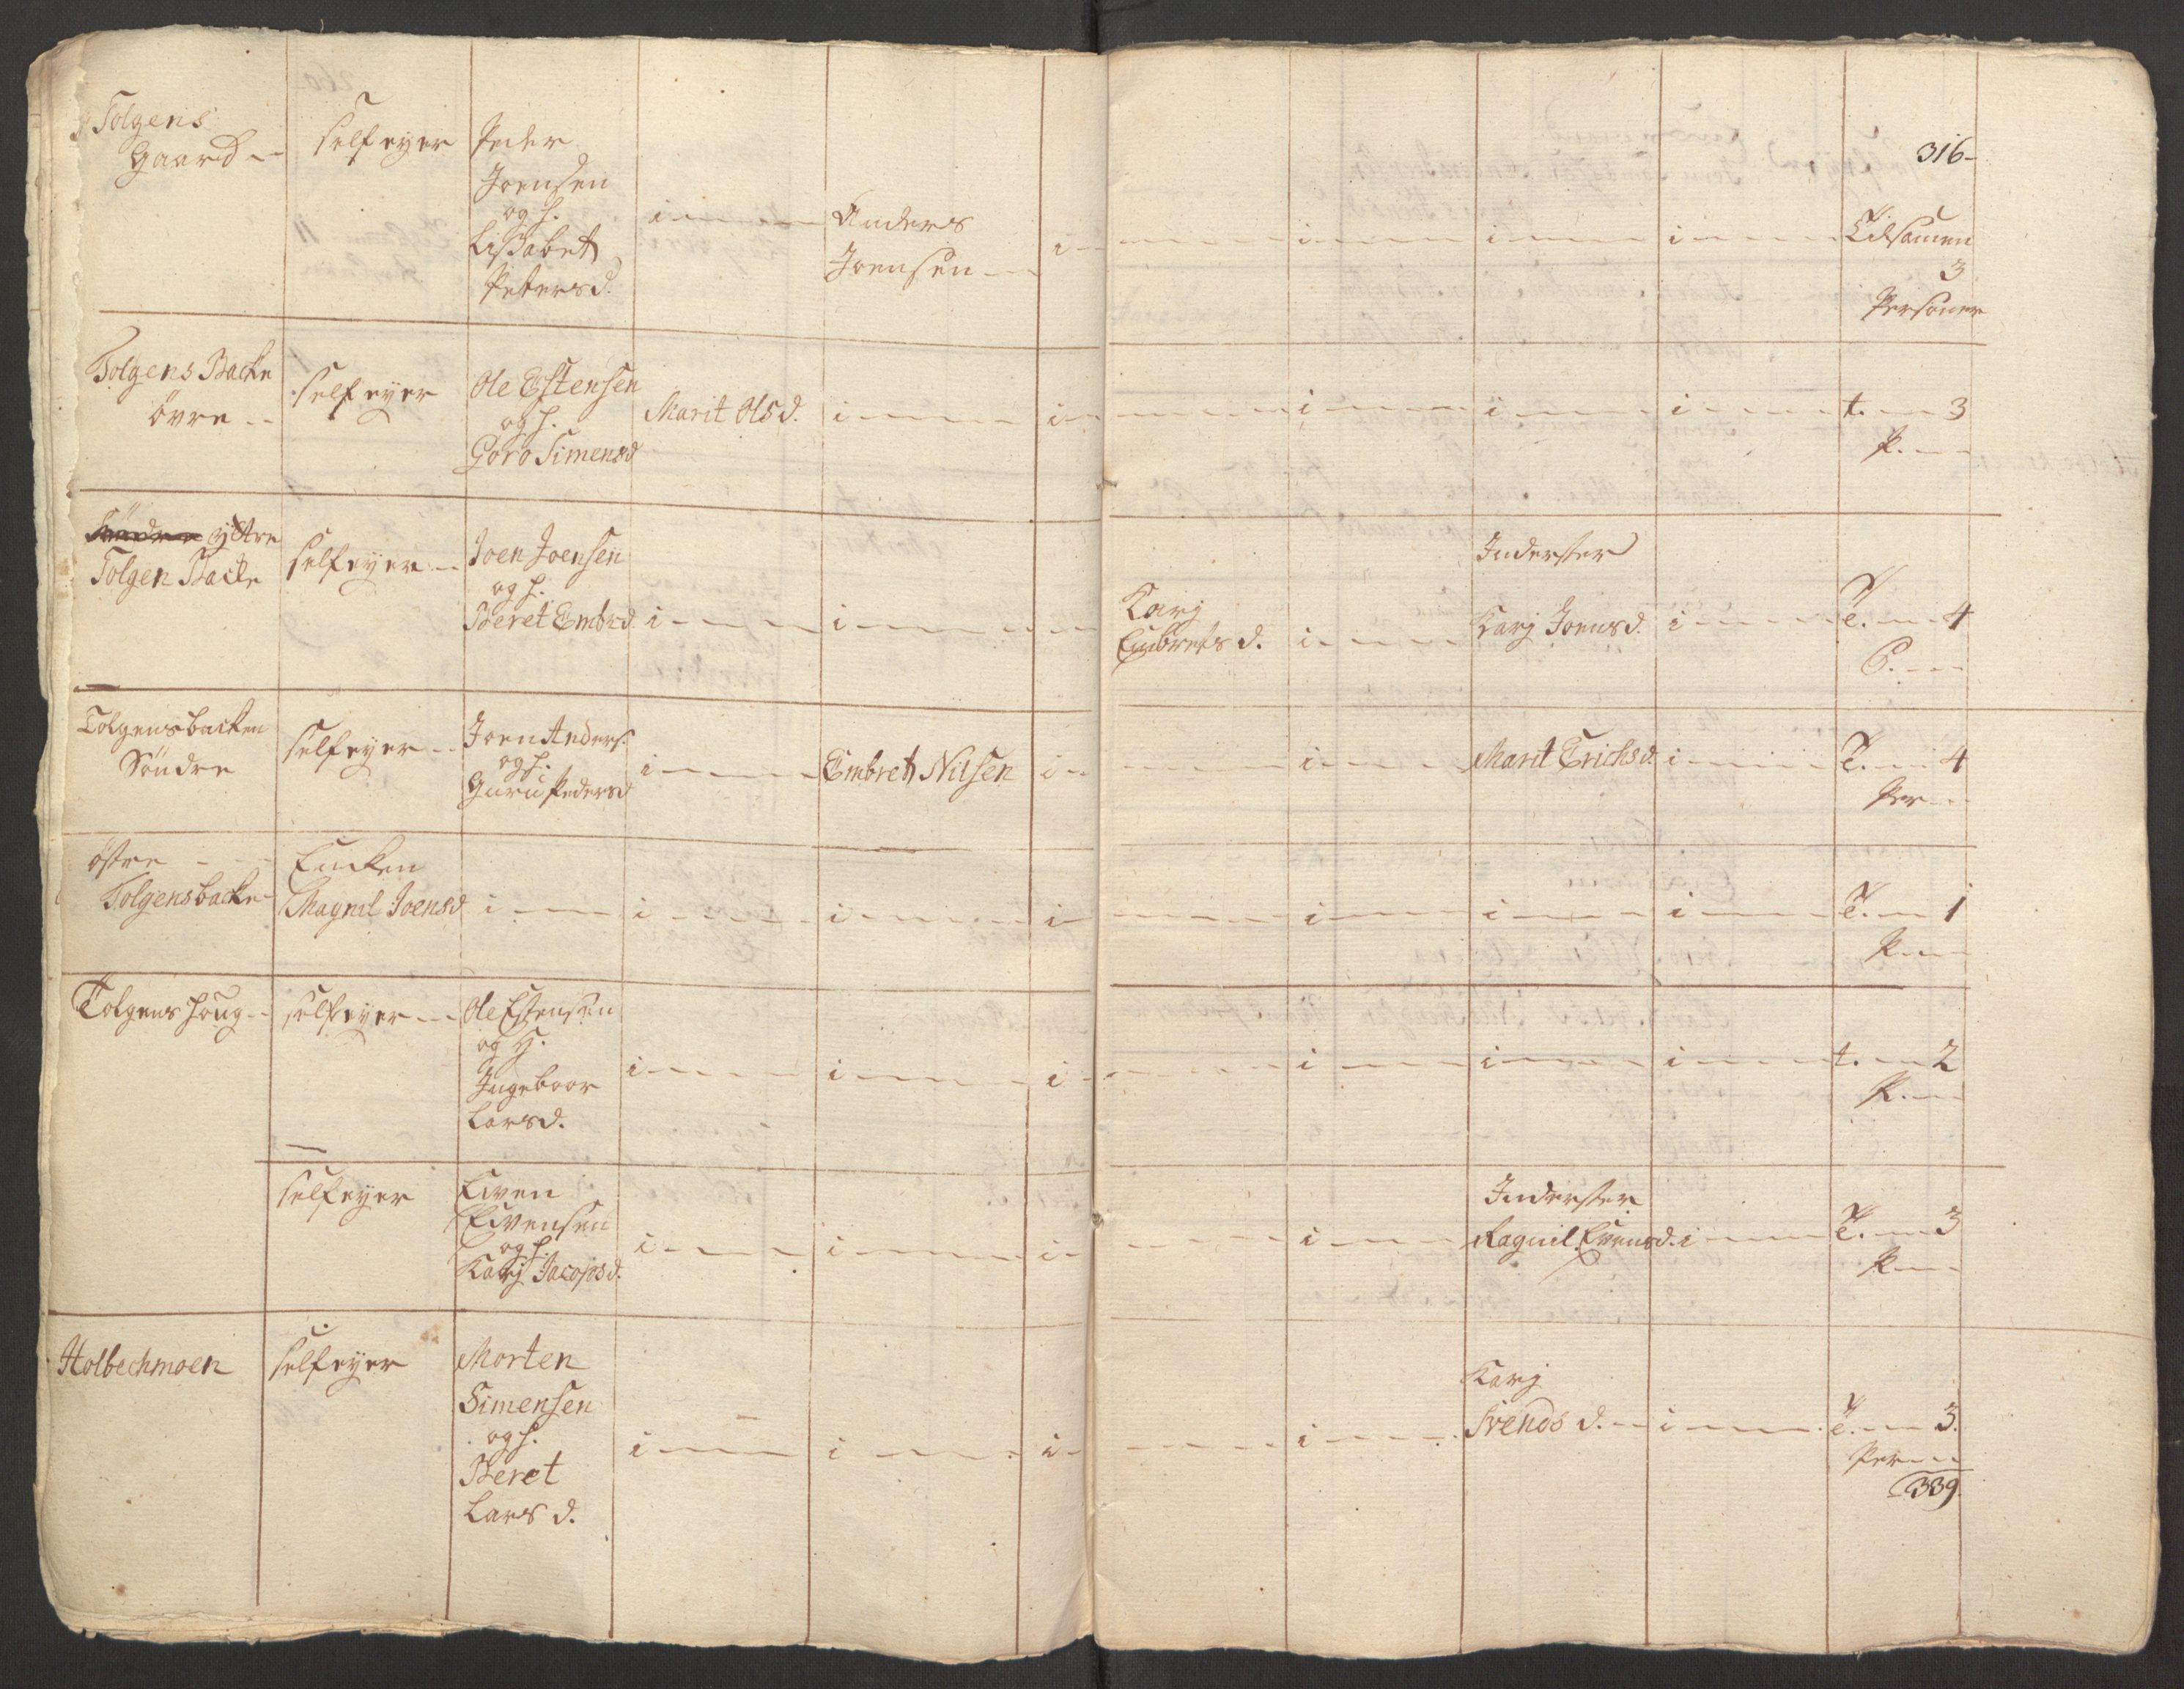 316-
Tolgens
Gaard -- selfeyer Peder
Joensen
og h.
Lissabet
Petersd.
i - - - - Anders
Joensen - - i - - - - - i - - - i - - - i - - - Tilsamen
3
Personer
Tolgens Backe
övre -- selfeyer Ole Estensen
og h.
Goro Simensd
Marit Olsd. i - - - - i - - - - - i - - - i - - - i - - - t. - - 3
P. - -
Söndre ystre
Tolgen Backe selfeyer -- Joen Joensen
og h.
Beret Embrd i - - - - i - - - - - -
Karj
Embrets d. i - - - -
Inderster
Karj Joensd. i - - - - T. - - 4
P. - -
Tolgensbacken
Söndre selfeyer -- Joen Anders.
og h.
Guru Pedersd
i - - - - Embret Nilsen i - - - - - i - - - Marit Erichsd. i - - - - T. - - 4
Per - -
östre - - -
Tolgensbacke Encken
Magnil Joensd i - - - i - - - - i - - - - i - - - - - i - - - i - - - i - - - T. - - 1
P. - -
Tolgens houg -- selfeyer -- Ole Estensen
og H.
Ingeboor
Larsd.
i - - - - i - - - - i - - - - - i - - - i - - - i - - - t. - - 2
P. - -
selfeyer Even
Evensen
og h.
Karj Jacopsd.
i - - - - i - - - - i - - - - - i - - -
Inderster
Ragnil Evensd. i - - - - T. - - 3
P. - -
Holbechmoen selfeyer Morten
Simensen
og h.
Beret
Lars d.
i - - - - i - - - - i - - - - - i - - -
Karj
Svends d. -- i - - - - T. - - 3.
Per - -
339